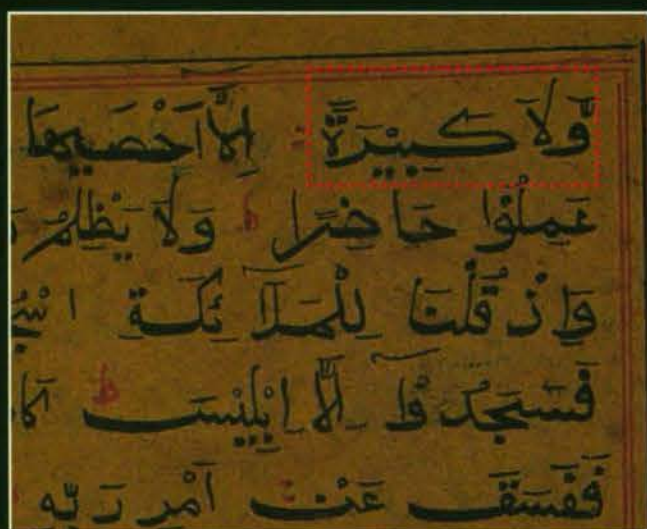 وَّلَا كَبِيْرَةً اِلَّا اَحْصٰىهَا
عَمِلُوْا حَاضِرًا ط وَلَا يَظْلِمُ
وَاِذْ قُلْنَا لِلْمَلَآئِكَةِ
فَسَجَدُوْٓا اِلَّآ اِبْلِيْسَ ط
فَفَسَقَ عَنْ اَمْرِ رَبِّهٖ